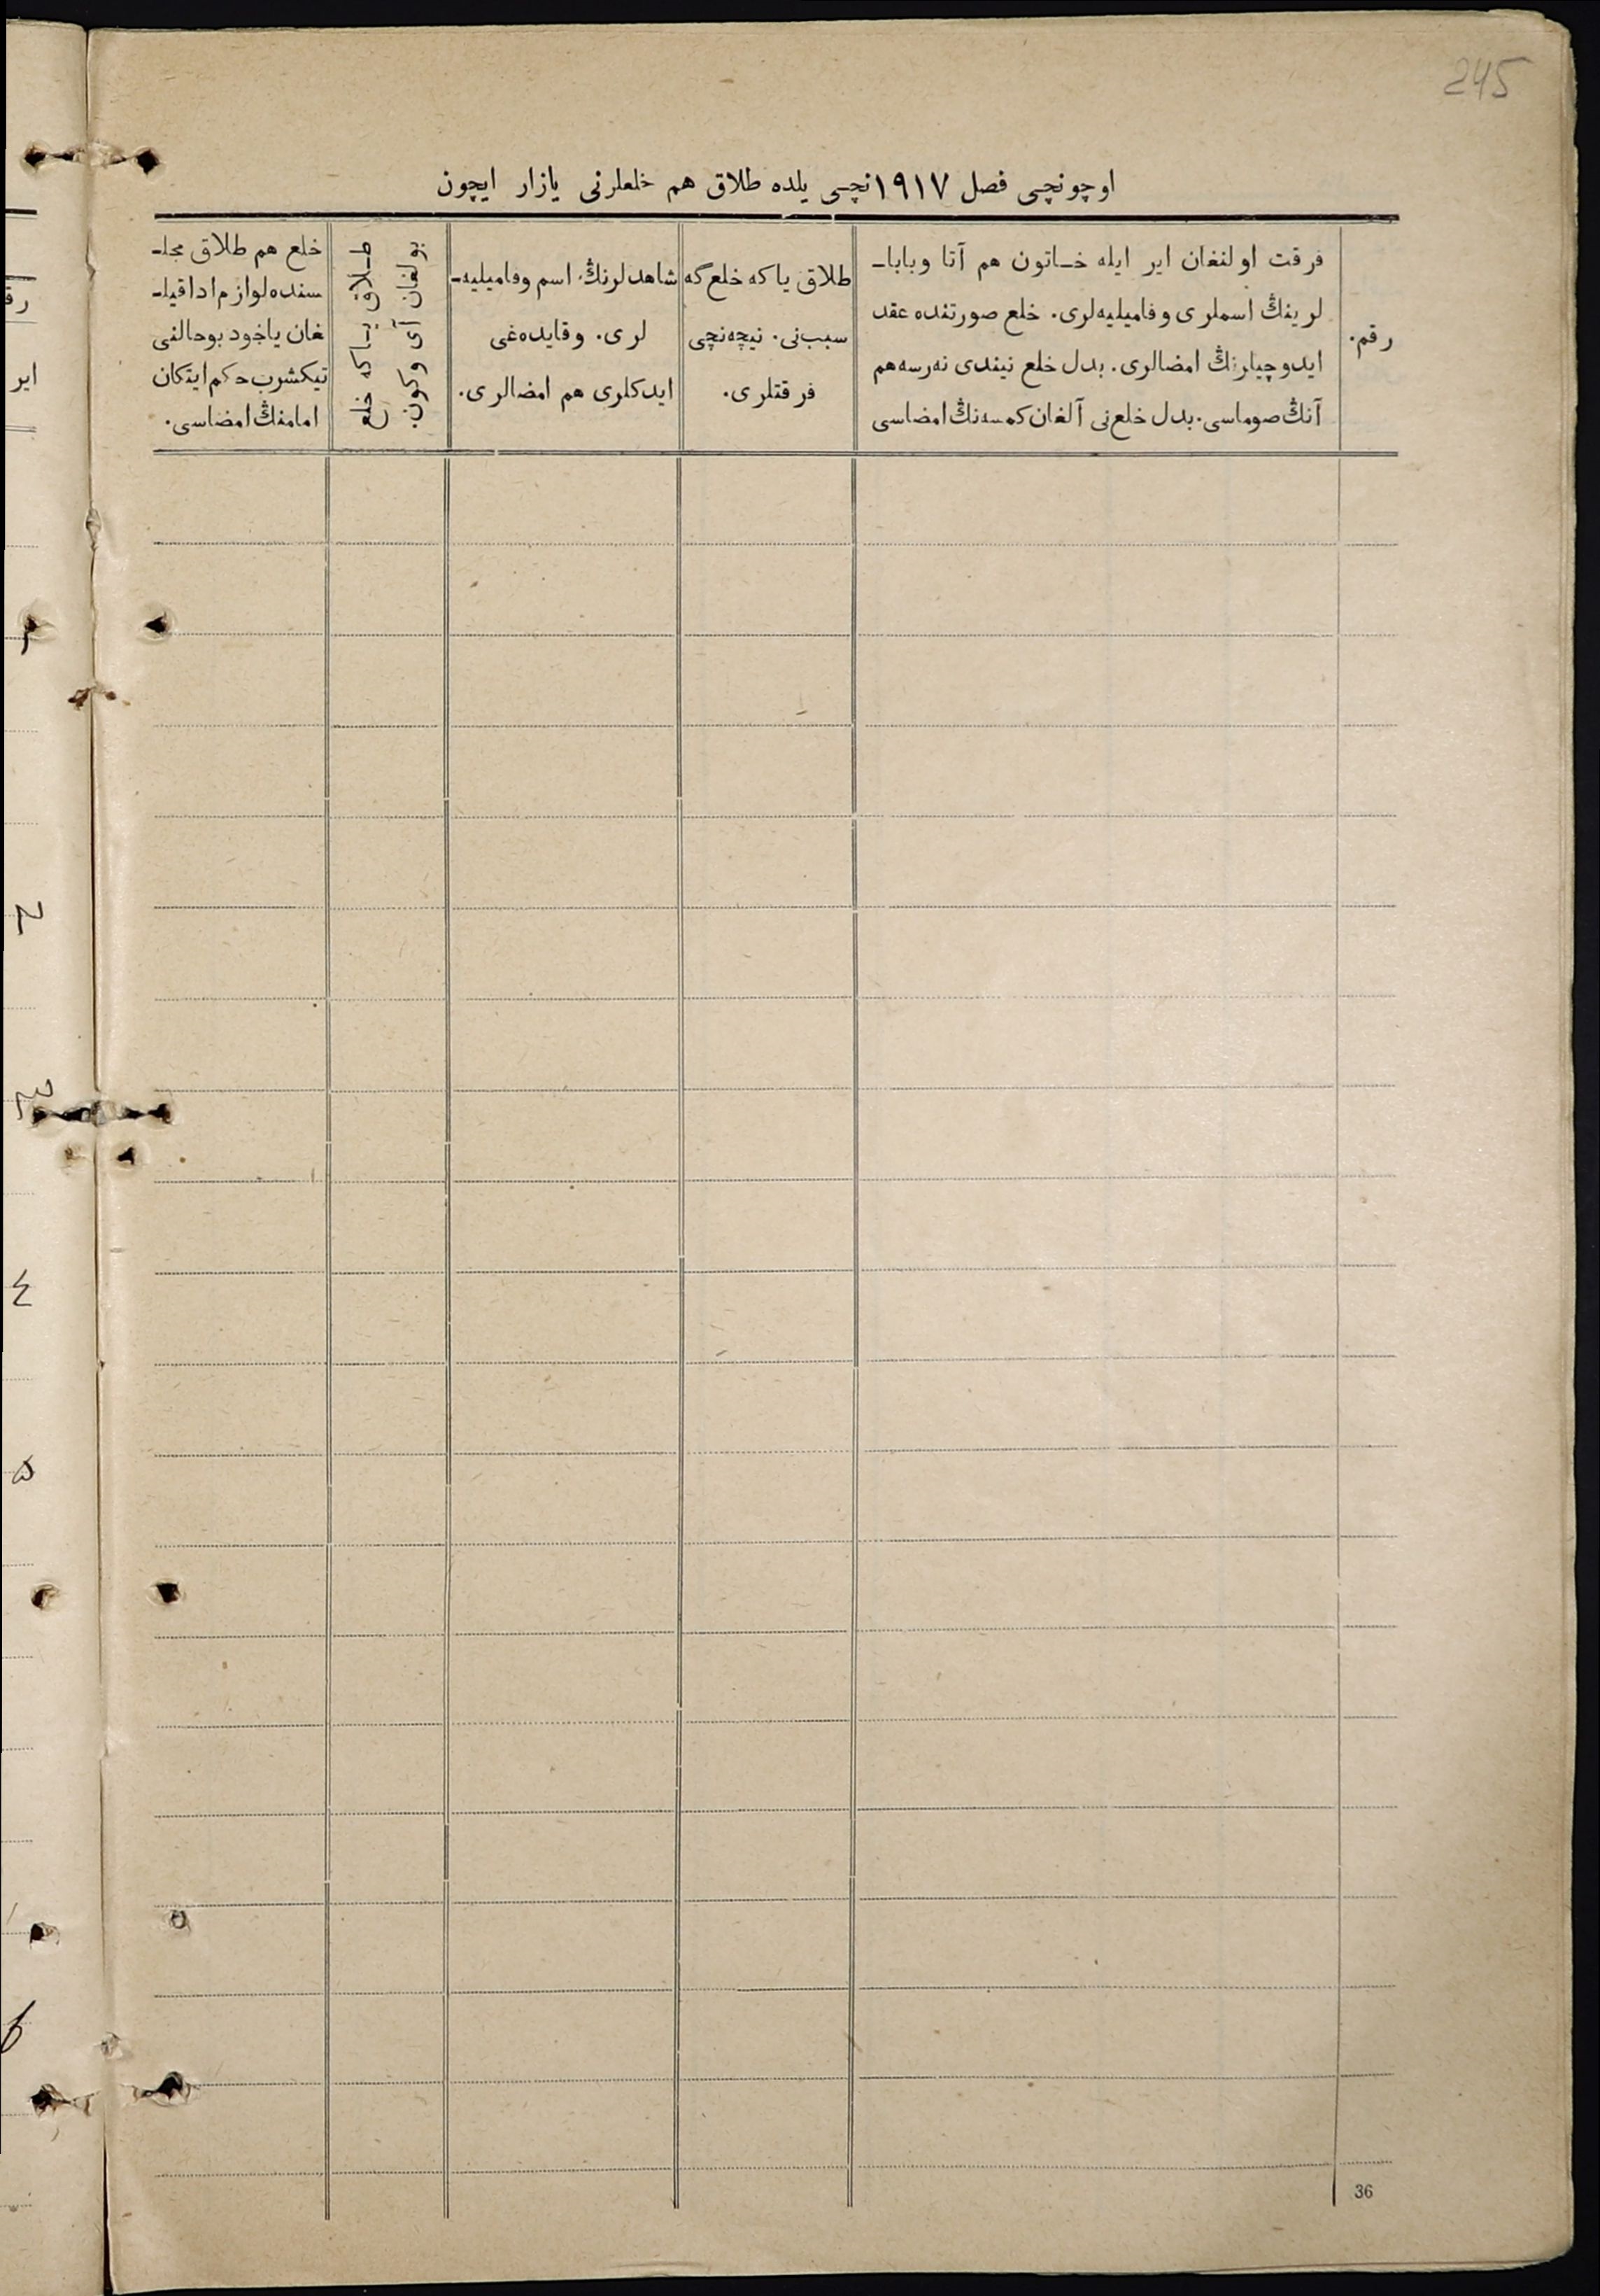 245
اوچونچی فصل ١٩١٧نچی یلده طلاق هم خلعلرنی یازار ایچون
رقم.
فرقت اولنغان ایر ایله خـاتون هم آتا وبابا-
لرینڭ اسملری وفامیلیه‌لری. خلع صورتنده عقد
ایدوچیلرنڭ امضالری. بدل خلع نیندی نه‌رسه هم
آنڭ صوماسی. بدل خلع‌نی آلغان کمسه‌نڭ امضاسی
طلاق یاکه خلع گه
سبب‌نی. نیچه‌نچی
فرقتلری.
شاهدلرنڭ اسم وفامیلیه-
لری. وقایده‌غی
ایدکلری هم امضالری.
طـلاق یـاکه خلع
بولغان آی وکون.
خلع هم طلاق مجلـ
سنده لوازم ادا قیلـ
غان یاخود بوحالنی
تیکشرب حکم ایتکان
امامنڭ امضاسی.
36
رق
ایر
٢
٣
٤
۵